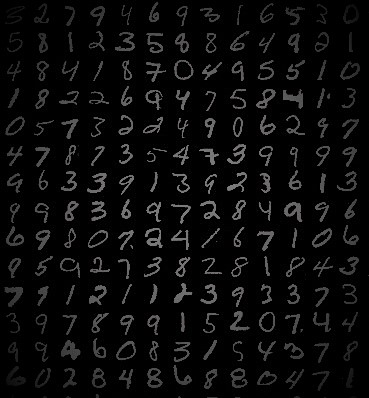 3 2 7 9 4 6 9 3 1 6 5 3 0
5 8 1 2 3 5 8 8 6 4 9 2 1
4 8 4 1 8 7 0 4 9 5 5 1 0
1 8 2 2 6 9 4 7 5 8 4 1 3
0 5 7 3 2 2 4 9 0 6 2 9 7
4 7 8 7 3 5 4 7 3 9 9 9 9
9 6 3 3 9 1 3 9 2 3 6 1 3
9 9 8 3 6 9 7 2 8 4 9 9 6
6 9 8 0 7 2 4 1 6 7 1 0 6
9 5 9 2 7 3 8 2 8 1 8 4 3
7 9 1 2 1 1 2 3 9 3 3 7 3
3 9 7 8 9 9 1 5 2 0 7 4 4
9 9 6 0 8 3 1 5 4 3 7 8
6 0 2 8 4 8 6 8 8 0 4 7 1